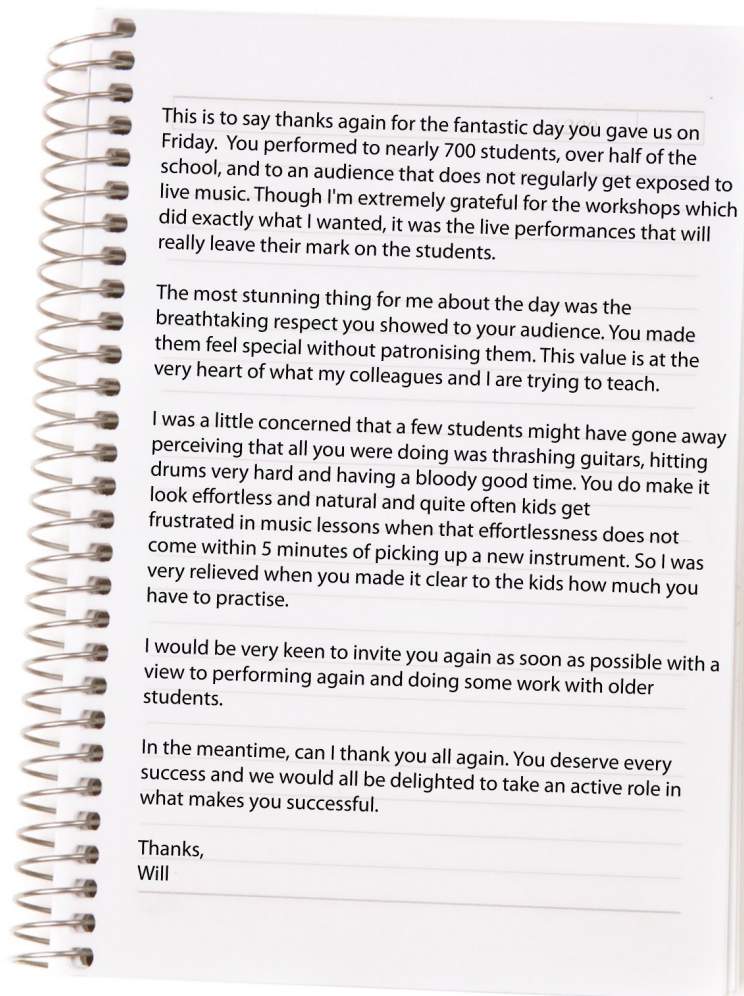 This is to say thanks again for the fantastic day you gave us on
Friday.  You performed to nearly 700 students, over half of the
school, and to an audience that does not regularly get exposed to
live music. Though I'm extremely grateful for the workshops which
did exactly what I wanted, it was the live performances that will
really leave their mark on the students.

The most stunning thing for me about the day was the
breathtaking respect you showed to your audience. You made
them feel special without patronising them. This value is at the
very heart of what my colleagues and I are trying to teach.

I was a little concerned that a few students might have gone away
perceiving that all you were doing was thrashing guitars, hitting
drums very hard and having a bloody good time. You do make it
look effortless and natural and quite often kids get
frustrated in music lessons when that effortlessness does not
come within 5 minutes of picking up a new instrument. So I was
very relieved when you made it clear to the kids how much you
have to practise.

I would be very keen to invite you again as soon as possible with a
view to performing again and doing some work with older
students.

In the meantime, can I thank you all again. You deserve every
success and we would all be delighted to take an active role in
what makes you successful.

Thanks,
Will